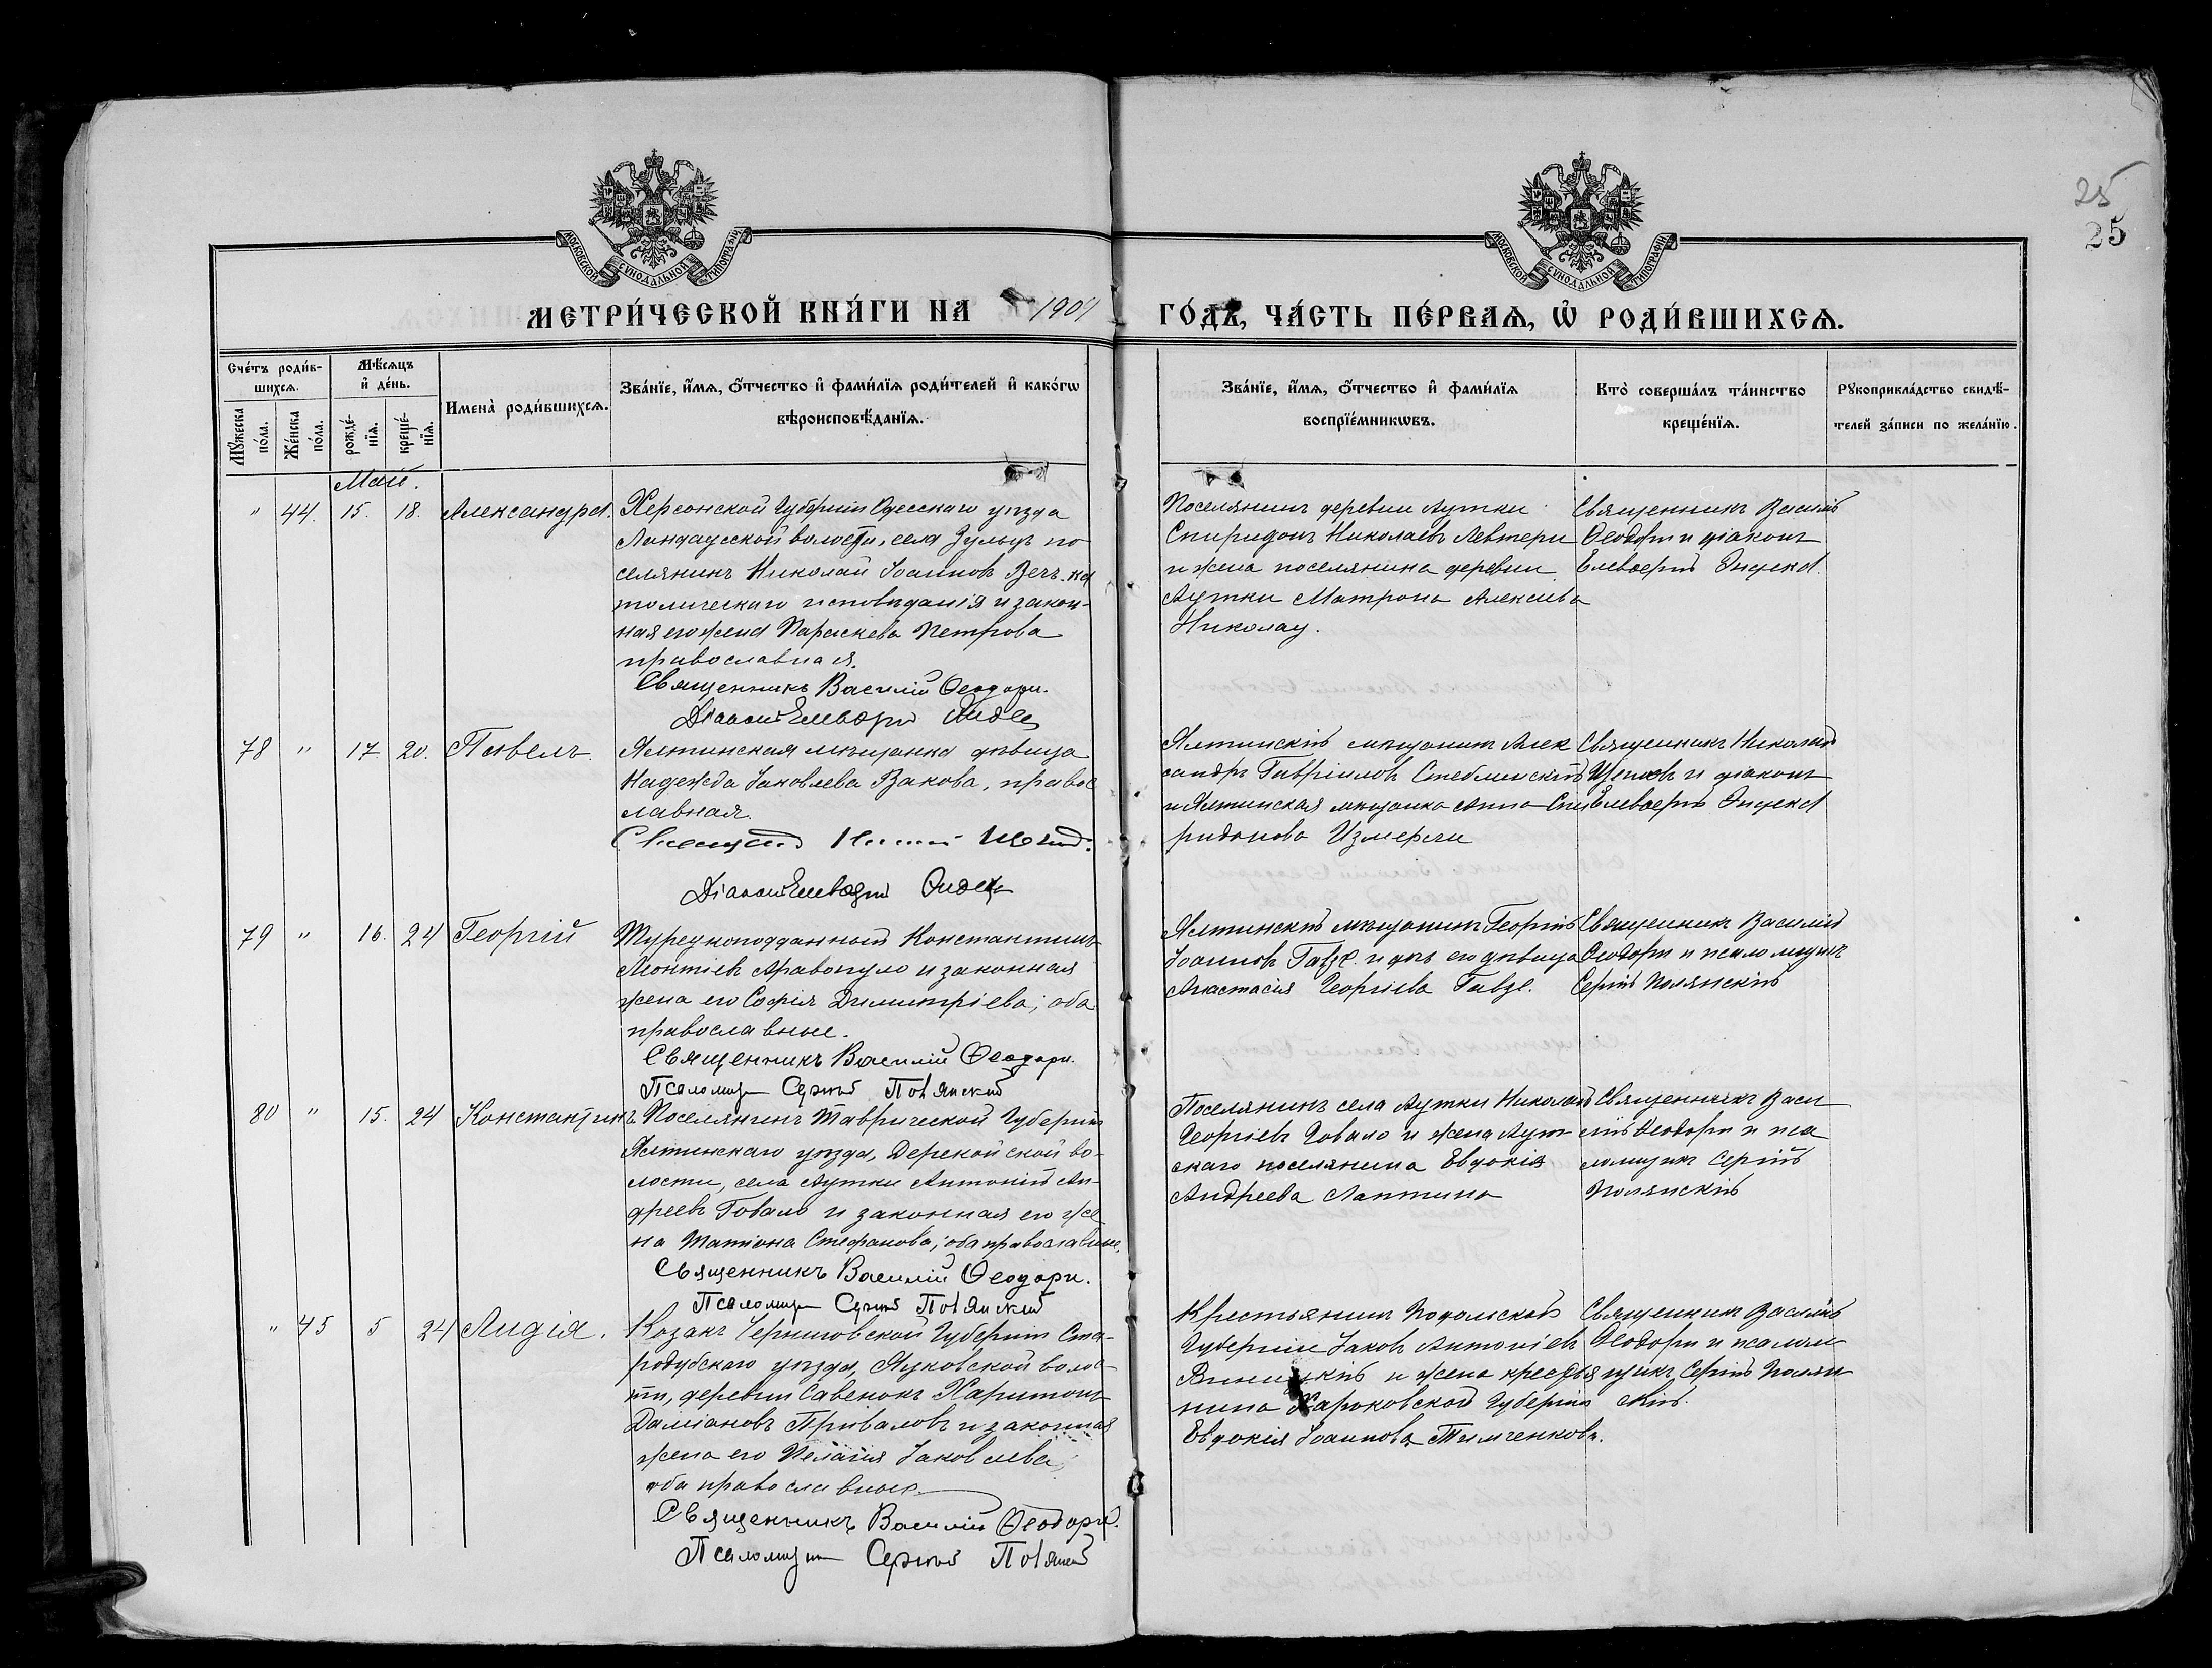 25
25
МОСКОВСКОЙ СѴНОДАЛЬНОЙ ТИПОГРАФІИ
МОСКОВСКОЙ СѴНОДАЛЬНОЙ ТИПОГРАФІИ
МЕТРИ́ЧЕСКОЙ КНИ́ГИ НА 1909 ГО́ДЪ, ЧА́СТЬ ПЕ́РВАѦ, Ѡ҆ РОДИ́ВШИХСѦ.
Сче́тъ роди́в-
шихсѧ.
Мѣ́сѧцъ
и҆ де́нь.
Мꙋжеска по́ла.
Же́нска по́ла.
рожде́-
нїѧ.
креще́-
нїѧ.
Имена̀ роди́вшихсѧ.
Зва́нїе, и҆́мѧ, ѻ҆́тчество и҆ фами́лїѧ роди́телей и҆ како́гѡ
вѣроисповѣ́данїѧ.
Зва́нїе, и҆́мѧ, ѻ҆́тчество и҆ фами́лїѧ
воспрїе́мникѡвъ.
Кто̀ соверша́лъ та́инство
креще́нїѧ.
Рꙋкоприкла́дство свидѣ́-
телей за́писи по жела́нїю.
Май.
" 44. 15. 18. Александра.
Херсонской Губерніи Одесскаго уѣзда
Ландауской волости, села Зульцъ по
селянинъ Николай Іоанновъ Вечъ ка
толическаго исповѣданія и закон-
ная его жена Параскева Петрова
православная.
Священникъ Василій Ѳеодори.
Діаконъ Елевѳерій
Поселянинъ деревни Аутки
Спиридонъ Николаевъ Левтери
и жена поселянина деревни
Аутки Матрона Алексіева
Николау.
Священникъ Василій
Ѳеодори и діаконъ
Елевѳерій
78 " 17. 20. Павелъ.
Ялтинская мѣщанка дѣвица
Надежда Іаковлева Вакова, правос
лавная.
Діаконъ Елевѳерій
Ялтинскій мѣщанинъ Алек
сандръ Гавріиловъ Стеблинскій
и Ялтинская мѣщанка Анна Спи
ридонова Измерли
Священникъ Николай
и діаконъ
Елевѳерій
79 " 16. 24 Георгій
Турецкоподданный Константинъ
Леонтіевъ Аравопуло и законная
жена его Софія Димитріева; оба
православные.
Священникъ Василій Ѳеодори.
Псаломщ Сергій Полянскій
Ялтинскій мѣщанинъ Георгій
Іоанновъ Гавзе. и дочь его дѣвица
Анастасія Георгіева Гавзе.
Священникъ Василій
Ѳеодори и псаломщикъ
Сергій Полянскій
80 " 15. 24 Константинъ
Поселянинъ Таврической Губерніи
Ялтинскаго уѣзда, Дерекойской во-
лости, села Аутки Антоній Ан-
дреевъ Говало и законная его же
на Татіана Стефанова; оба православные.
Священникъ Василій Ѳеодори.
Псаломщ Сергій Полянскій
Поселянинъ села Аутки Николай
Георгіевъ Говало и жена Аут
скаго поселянина Евдокія
Андреева Лаптина
Священникъ Васи
лій Ѳеодори и пса
ломщикъ Сергій
Полянскій
" 45 5 24 Лидія.
Козакъ Черниговской Губерніи Ста-
родубскаго уѣзда, Лужовской волос-
ти, деревни Савенокъ Харитонъ
Даміановъ Приваловъ и законная
жена его Пелагія Іаковлева
оба православные.
Священникъ Василій Ѳеодори.
Псаломщ Сергій Полянскій
Крестьянинъ Подольской
Губерніи Іаковъ Антоніевъ
Виницкій и жена крестья
нина Харьковской Губерніи
Евдокія Іоаннова Тимченкова.
Священникъ Василій
Ѳеодори и псалом
щикъ Сергій Полян
скій.